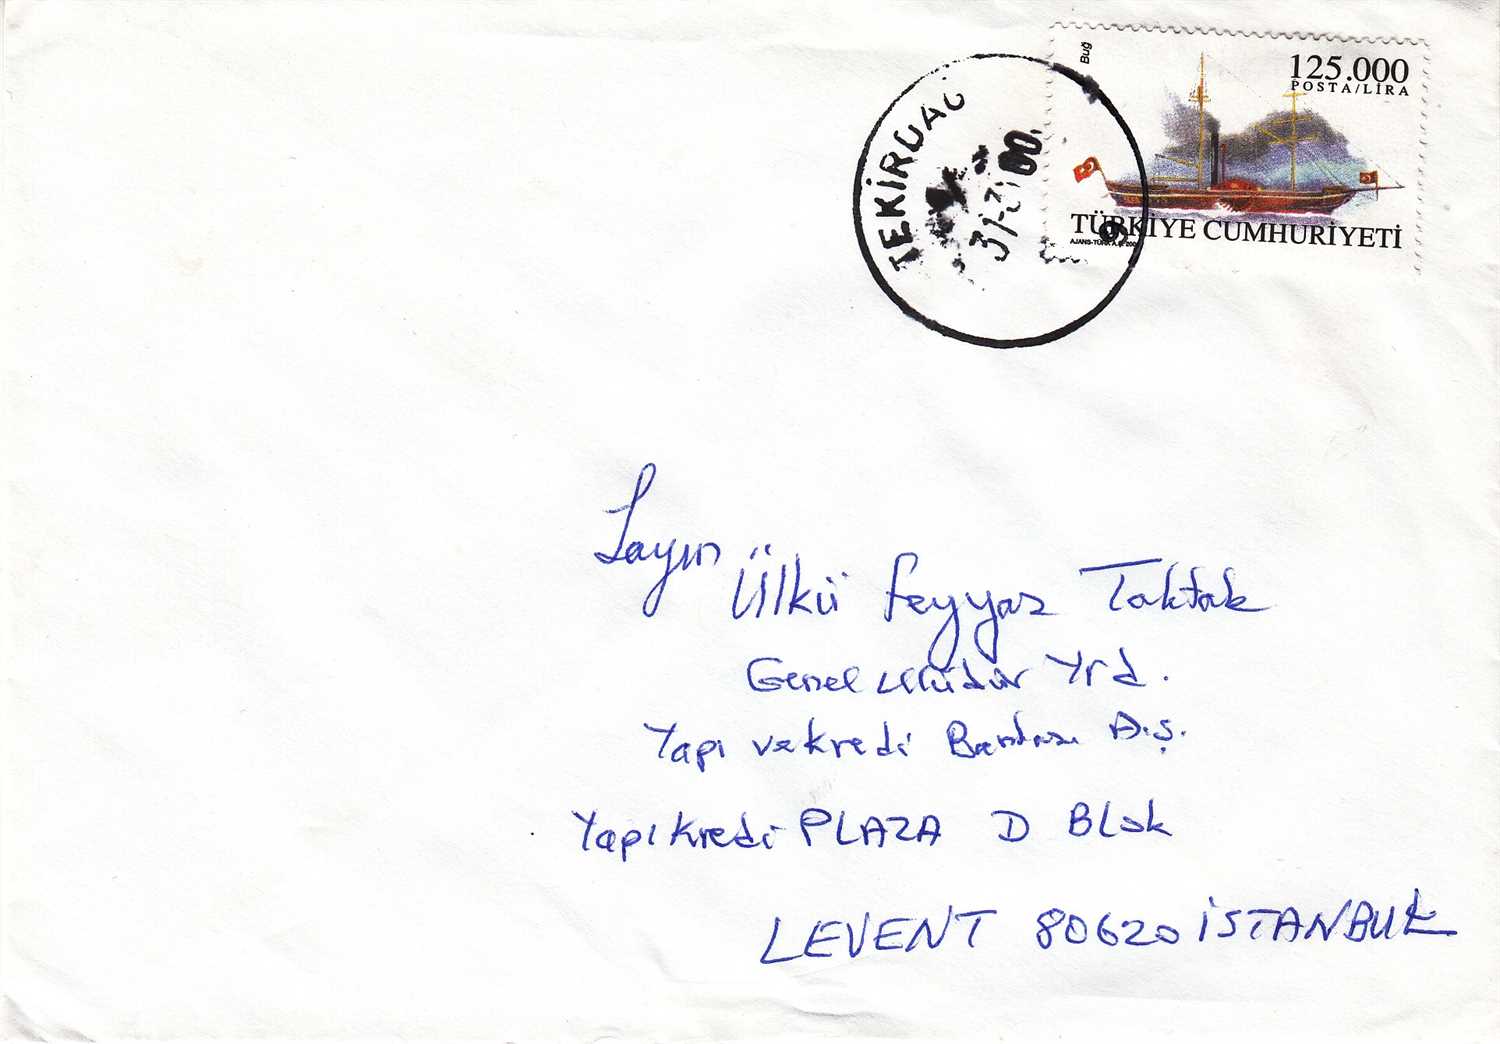 Buğ
125.000
POSTA/LİRA
TEKİRDAĞ
00
TÜRKİYE CUMHURİYETİ
AJANS-TÜRK A.Ş.
Sayın
Ülkü Feyyaz Taktak
Genel Müdür Yrd.
Yapı ve kredi Bankası A.Ş.
Yapı kredi PLAZA D Blok
LEVENT 80620 İSTANBUL